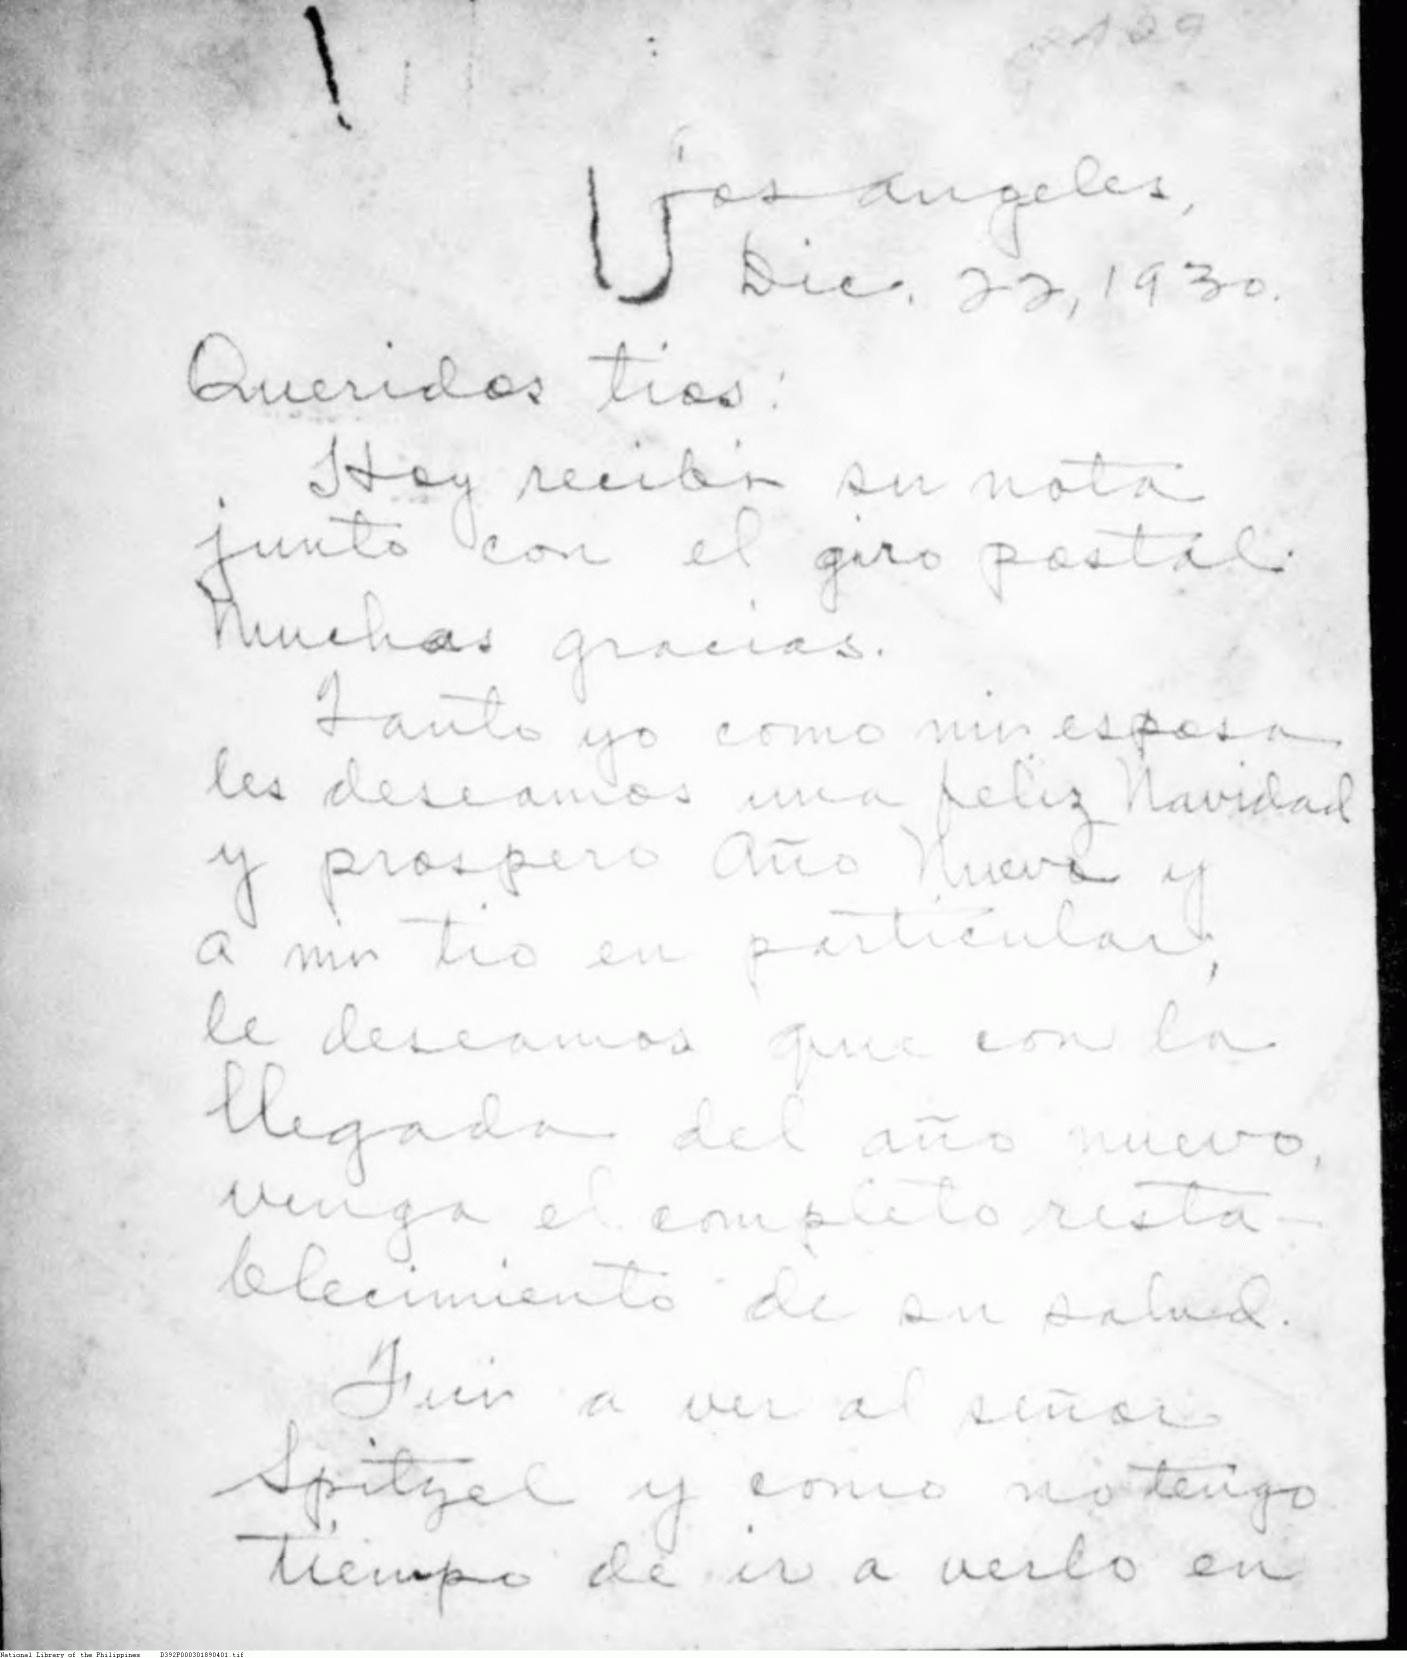 Los Angeles,
Dic. 22, 1930.
Queridos tios:
Hoy recibí su nota
junto con el giro postal.
Muchas gracias.
Tanto yo como mi esposa
les deseamos una feliz Navidad
y prospero Año Nuevo y
a mi tio en particular,
le deseamos que con la
llegada del año nuevo,
venga el completo resta-
blecimiento de su salud.
Fui a ver al señor
Spitzel y como no tengo
tiempo de ir a verlo en
National Library of the Philippines D392P000301890401.tif